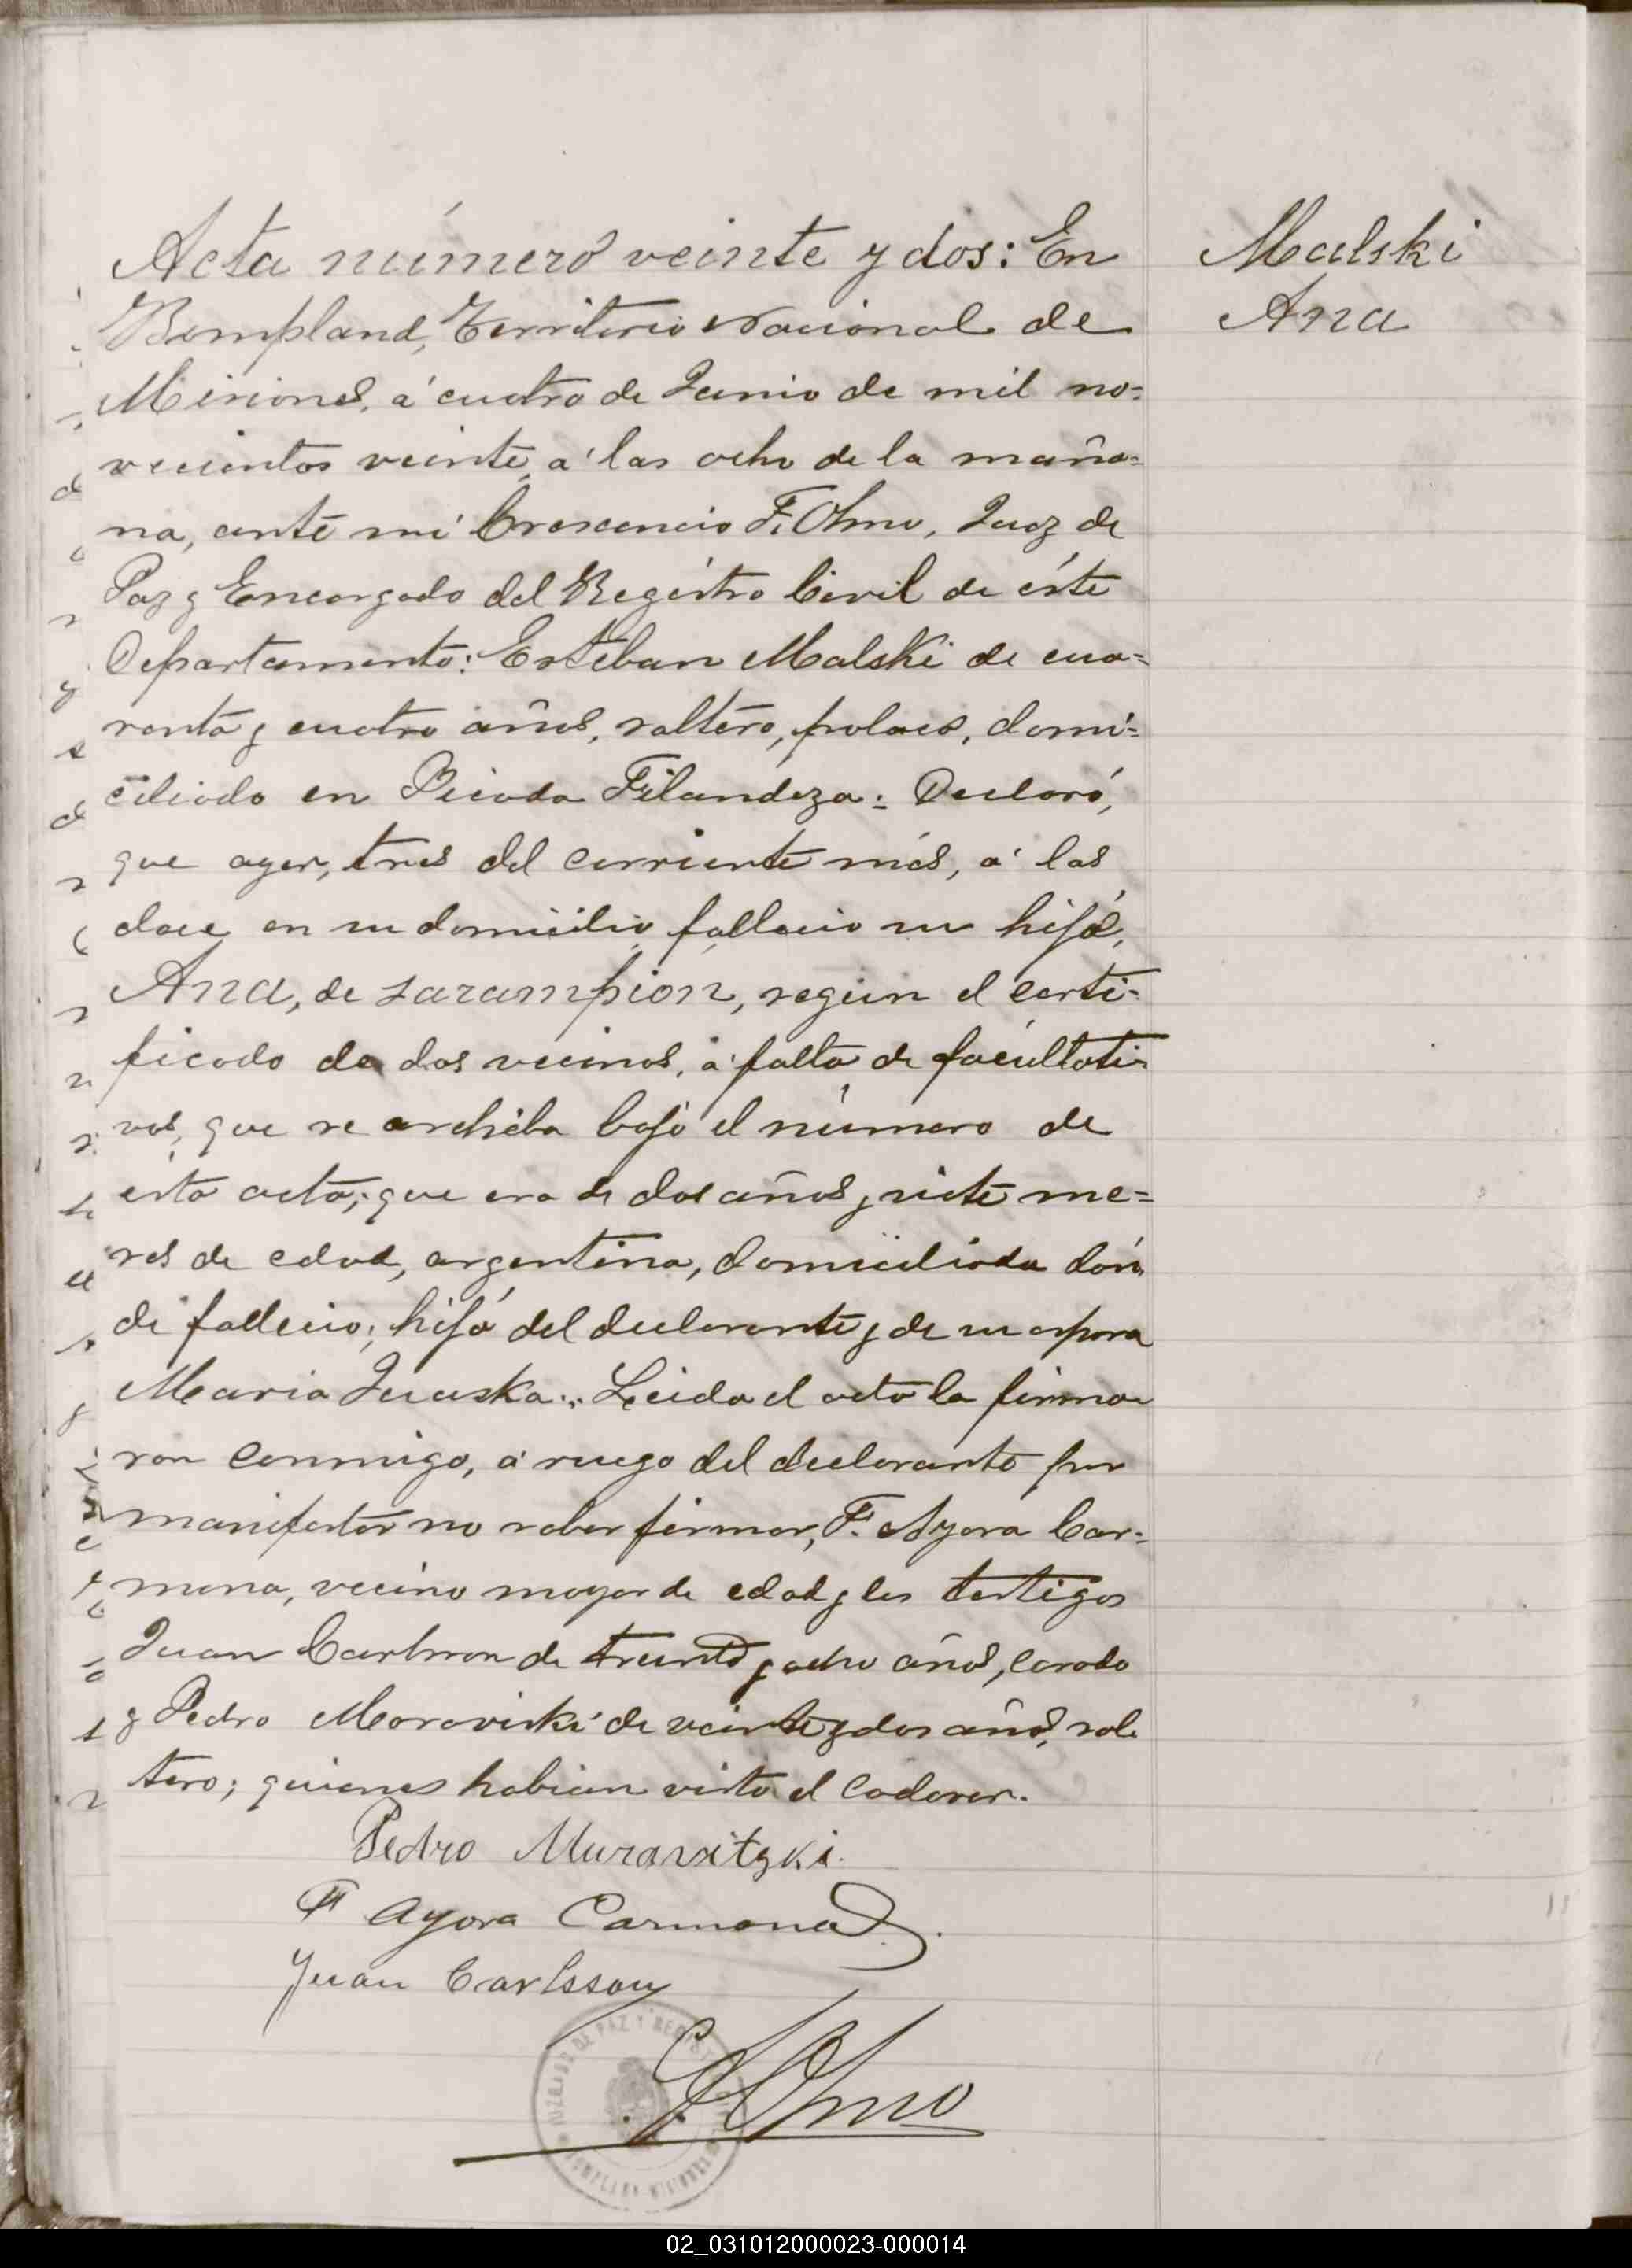 Acta número veinte y dos: En
Bompland, Territorio Nacional de
Misiones, á cuatro de Junio de mil no-
vecientos veinte, a' las ocho de la maña-
na, ante mi Crescencio F. Olmo, Juez de
Paz y Encargado del Registro Civil de éste
Departamento: Esteban Malski de cua-
renta y cuatro años, soltero, polaco, domi-
ciliado en Picada Filandeza: Declaró,
que ayer, tres del corriente més, a' las
doce en su domicilio fallecio su hija,
Ana, de sarampión, según el certi-
ficado de dos vecinos, a' falta de facultati-
vos, que se archiba bajo el número de
ésta acta; que era de dos años y siete me-
ses de edad, argentina, domiciliada dón
de fallecio; hija del declarante y de su esposa
Maria Juaska. Leida el acta la firma
ron conmigo, a' ruego del declarante por
manifestar no saber firmar, F. Ayora Car-
mona, vecino mayor de edad y los testigos
Juan Carlsson de treinta y ocho años, casado
y Pedro Moroviski de veinte y dos años, sol
tero; quienes habian visto el cadaver.
Pedro Muravitzki.
F Ayora Carmona
Juan Carlsson
F Olmo
Malski
Ana
JUZGADO DE PAZ Y
BOMPLAND MISIONES
02_031012000023-000014